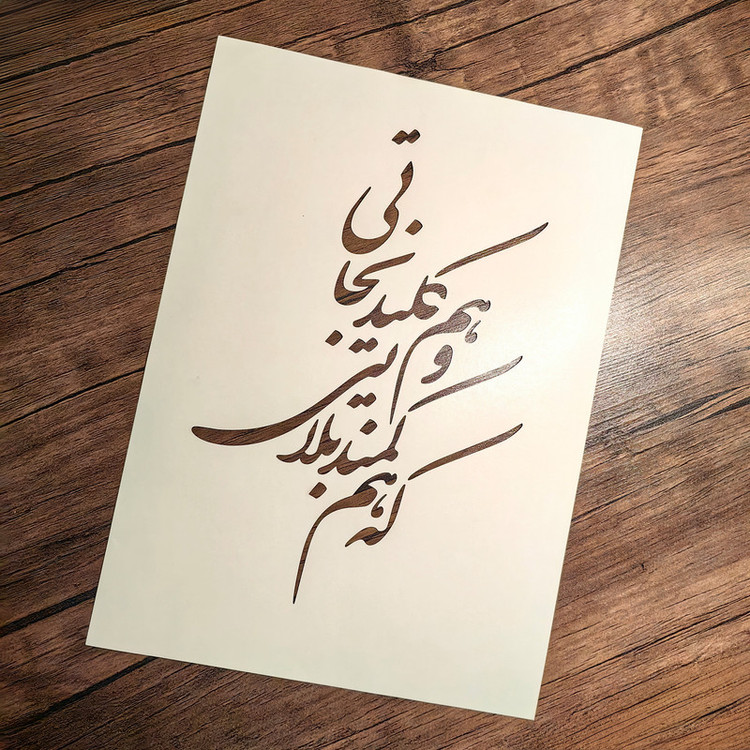 که هم کمند بلایی
و هم کلید نجاتی